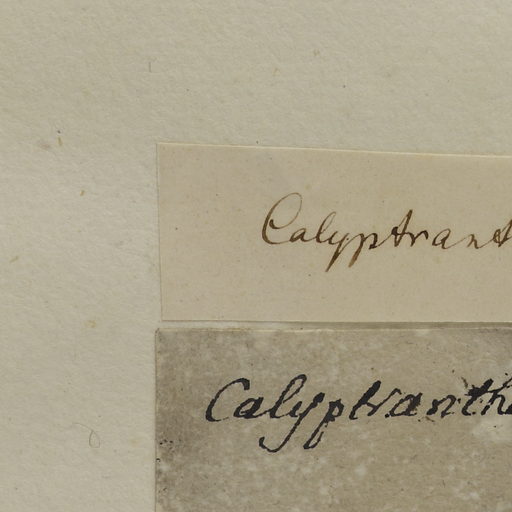 Calyptrant
Calyptranth